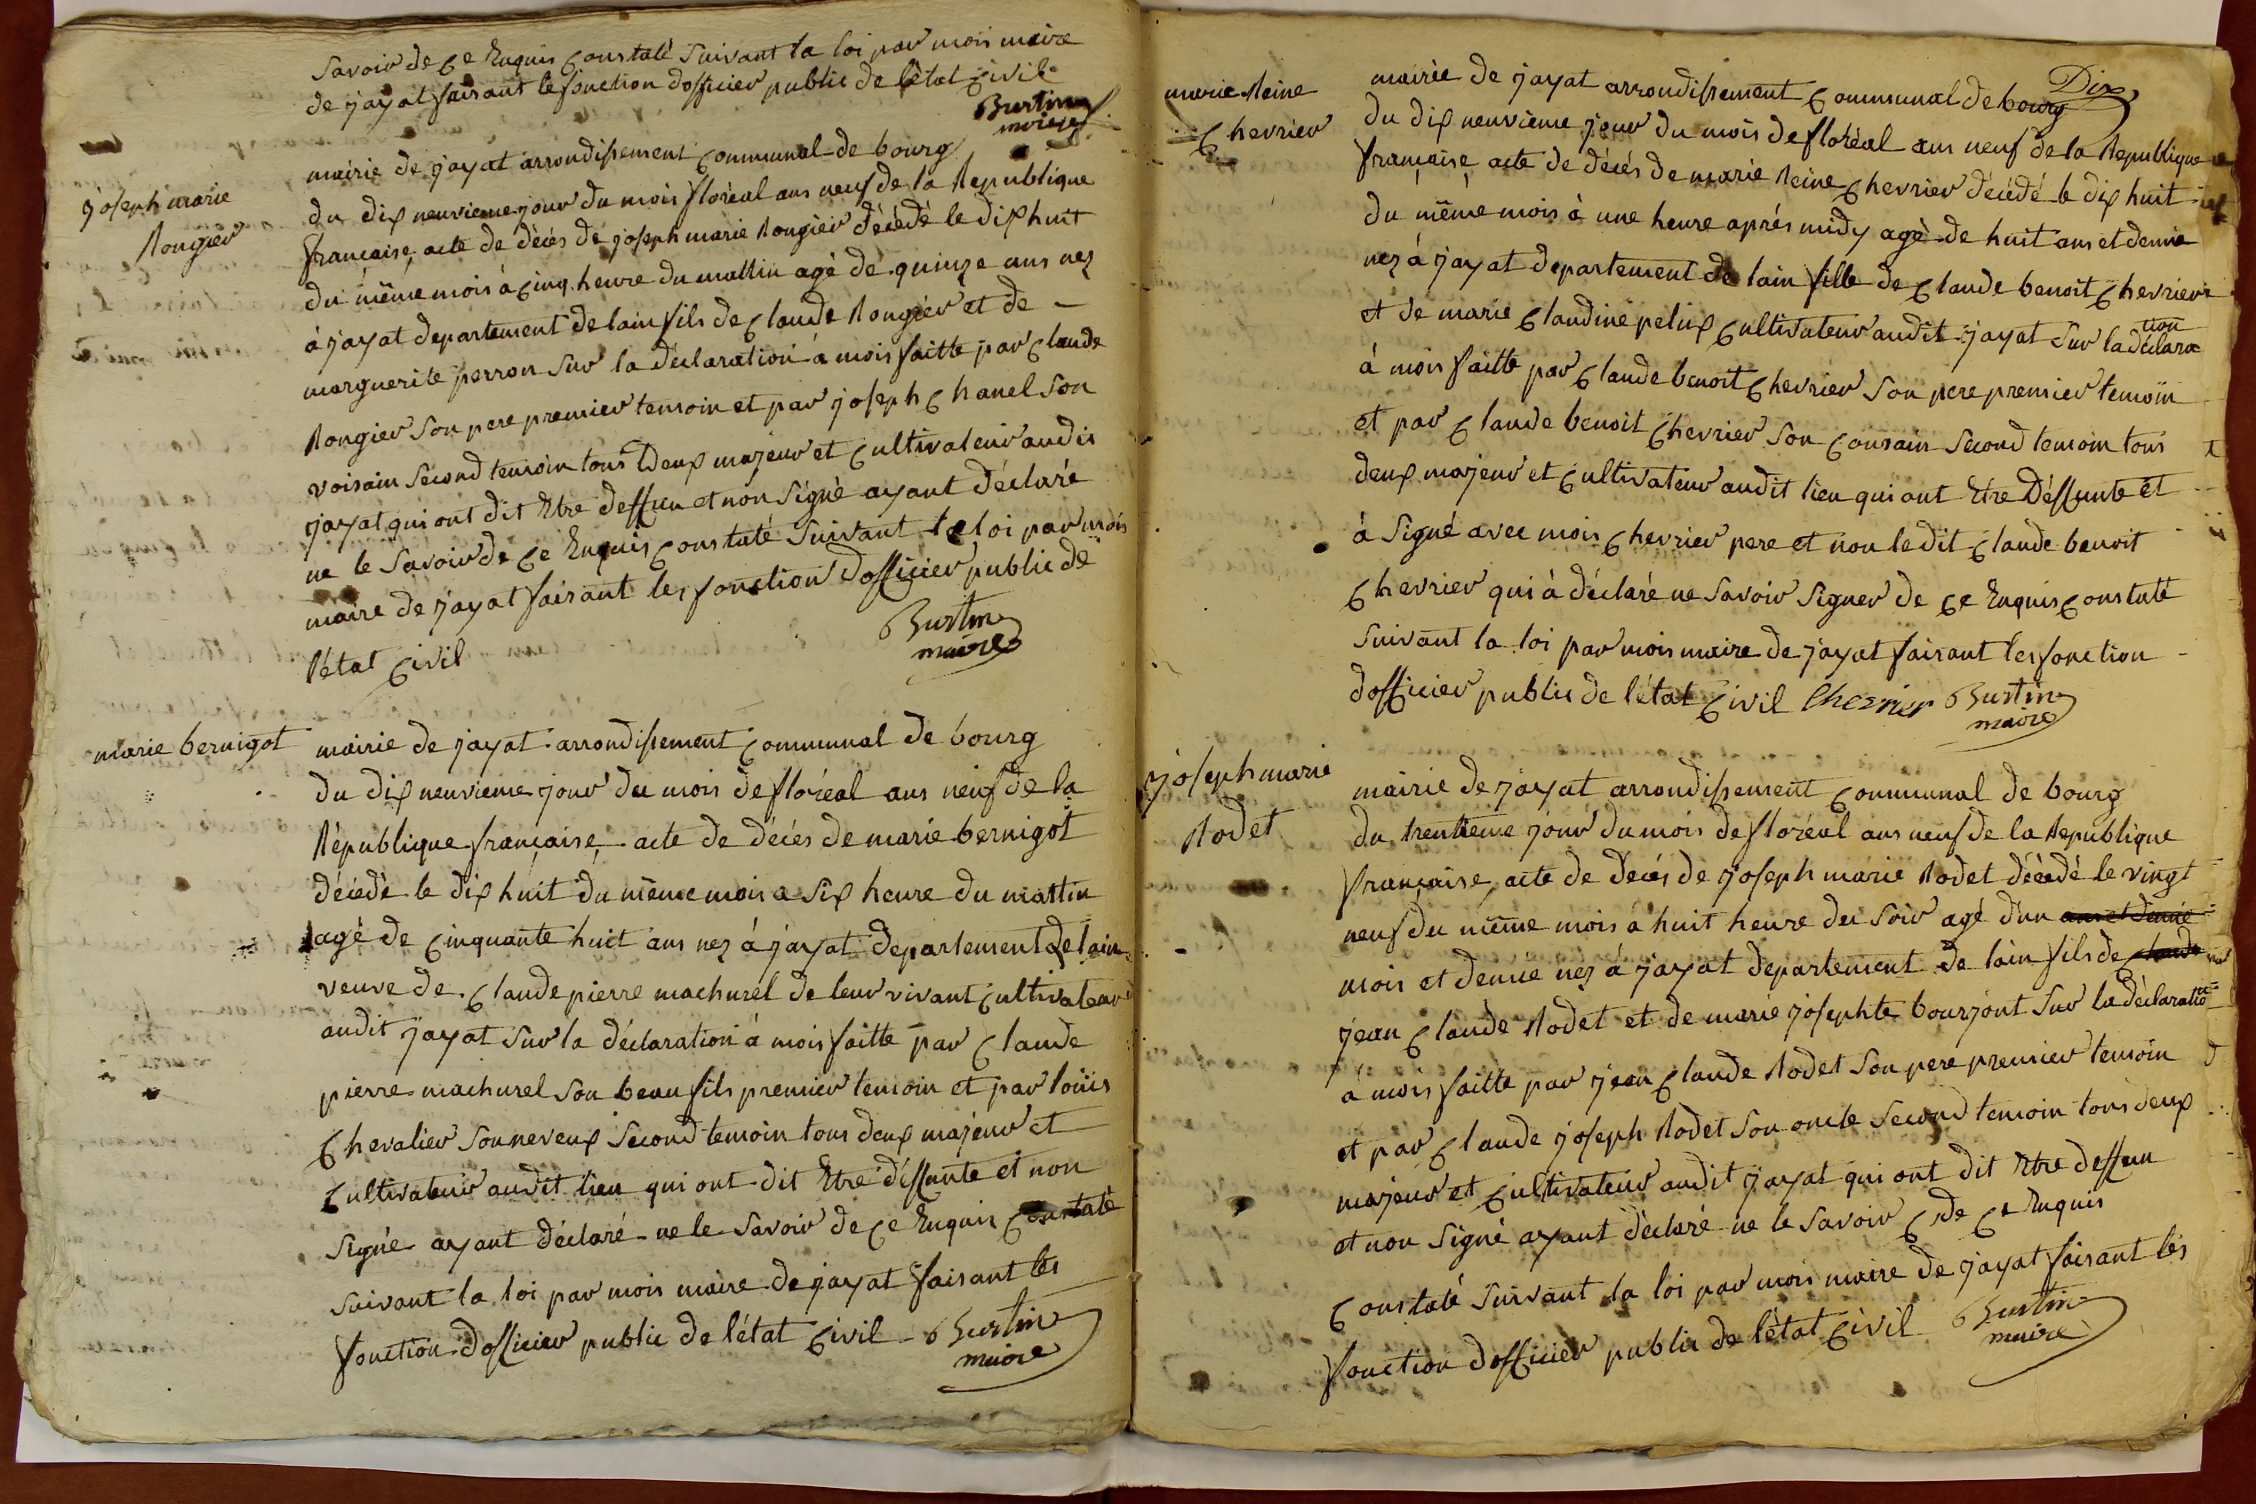 savoir de ce Enquis Constaté suivant la loi par mois maire
de jayat faisant le fonction dofficier public de létat Civil
Burtin
maire
joseph marie
Rongier
mairie de jayat arrondissement Communal de bourg
du dix neuvieme jour du mois floréal ans neuf de la Republique
française, acte de décés de joseph marie Rongier décédé le dix huit
du même mois à Cinq heure du mattin agé de quinze ans nez
à jayat departement de lain fils de Claude Rongier et de
marguerite perron sur la déclaration à mois faitte par Claude
Rongier son pere premier temoin et par joseph Chanel son
voisain second temoin tous deux majeur et Cultivateur audis
jayat qui ont dit Etre deffun et non signé ayant déclaré
ne le savoir de Ce Enquis Constaté suivant la loi par mois
maire de jayat faisant les fonction dofficier public de
l'état Civil
Burtin
maire
marie bernigot
mairie de jayat arrondissement Communal de bourg
du dix neuvieme jour du mois de floréal ans neuf de la
République française, acte de décés de marie bernigot
décédé le dix huit du même mois a six heure du mattin
agé de Cinquante huit ans nez à jayat departement de lain
veuve de Claude pierre machurel de leur vivant Cultivateur
audit jayat sur la déclaration à mois faitte par Claude
pierre machurel son beau fils premier temoin et par loüis
Chevalier son neveux second temoin tous deux majeur et
Cultivateur audit lieu qui ont dit Etre deffunte et non
signé ayant déclaré ne le savoir de Ce Enquis Constaté
suivant la loi par mois maire de jayat faisant les
fonction dofficier public de l'état Civil Burtin
maire
Dix
marie Reine
Chevrier
mairie de jayat arrondissement Communal de bourg
du dix neuvieme jour du mois de floréal ans neuf de la Republique
française acte de décés de marie Reine Chevrier décédé le dix huit
du même mois à une heure aprés midy agé de huit ans et demie
nez à jayat departement de lain fille de Claude benoit Chevrier
et de marie Claudine pelux Cultivateur audit jayat sur la déclaration
à mois faitte par Claude benoit Chevrier son pere premier temoin
et par Claude benoit Chevrier son Cousain second temoin tous
deux majeur et Cultivateur audit lieu qui ont Etre Déffunte et
à signé avec mois Chevrier pere et non le dit Claude benoit
Chevrier qui à déclaré ne savoir signer de Ce Enquis Constaté
suivant la loi par mois maire de jayat faisant les fonction
dofficier public de l'état Civil Chevrier Burtin
maire
joseph marie
Rodet
mairie de jayat arrondissement Communal de bourg
du trentieme jour du mois de floréal ans neuf de la Republique
française, acte de decés de joseph marie Rodet décédé le vingt
neuf du même mois a huit heure du soir agé d'un ans et demie
mois et demie nez à jayat departement de lain fils de Claude
jean Claude Rodet et de marie josephte bourjont sur la déclaration
à mois faitte par jean Claude Rodet son pere premier temoin
et par Claude joseph Rodet son oncle second temoin tous deux
majeur et Cultivateur audit jayat qui ont dit Etre deffun
et non signé ayant déclaré ne le savoir de Ce Enquis
Constaté suivant la loi par mois maire de jayat faisant les
fonction dofficier public de l'état Civil Burtin
maire